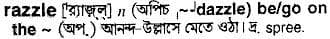 razzle [র‍্যাজ়্‌ল্] n (অপিচ ~-dazzle) be/go on
the ~ (অপ.) আনন্দ-উল্লাসে মেতে ওঠা। দ্র. spree.